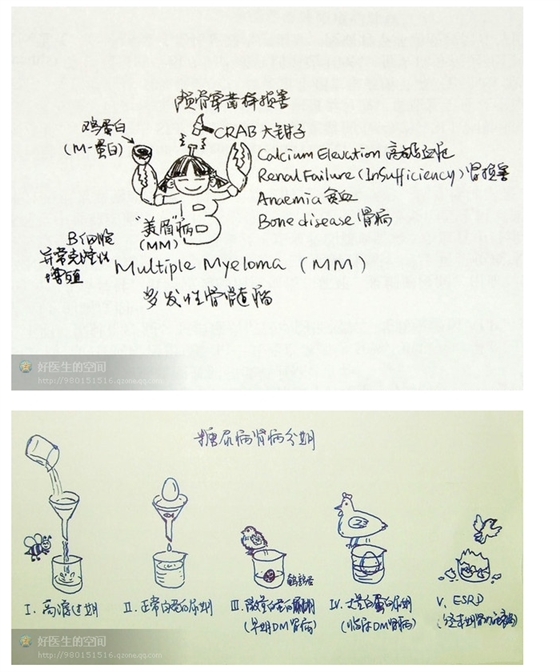 颅骨穿凿样损害
鸡蛋白
(M-蛋白)
CRAB大钳子
Calcium Elevation 高钙血症
Renal Failure (InSufficiency) 肾损害
Anaemia 贫血
Bone disease 骨病
"美眉"病
(MM)
B
B细胞
异常克隆性
增殖
Multiple Myeloma (MM)
多发性骨髓瘤
好医生的空间
http://980151516.qzone.qq.com
糖尿病肾病分期
I. 高滤过期
II. 正常白蛋白尿期
III. 微量白蛋白尿期
(早期DM肾病)
IV. 大量白蛋白尿期
(临床DM肾病)
V. ESRD
好医生的空间